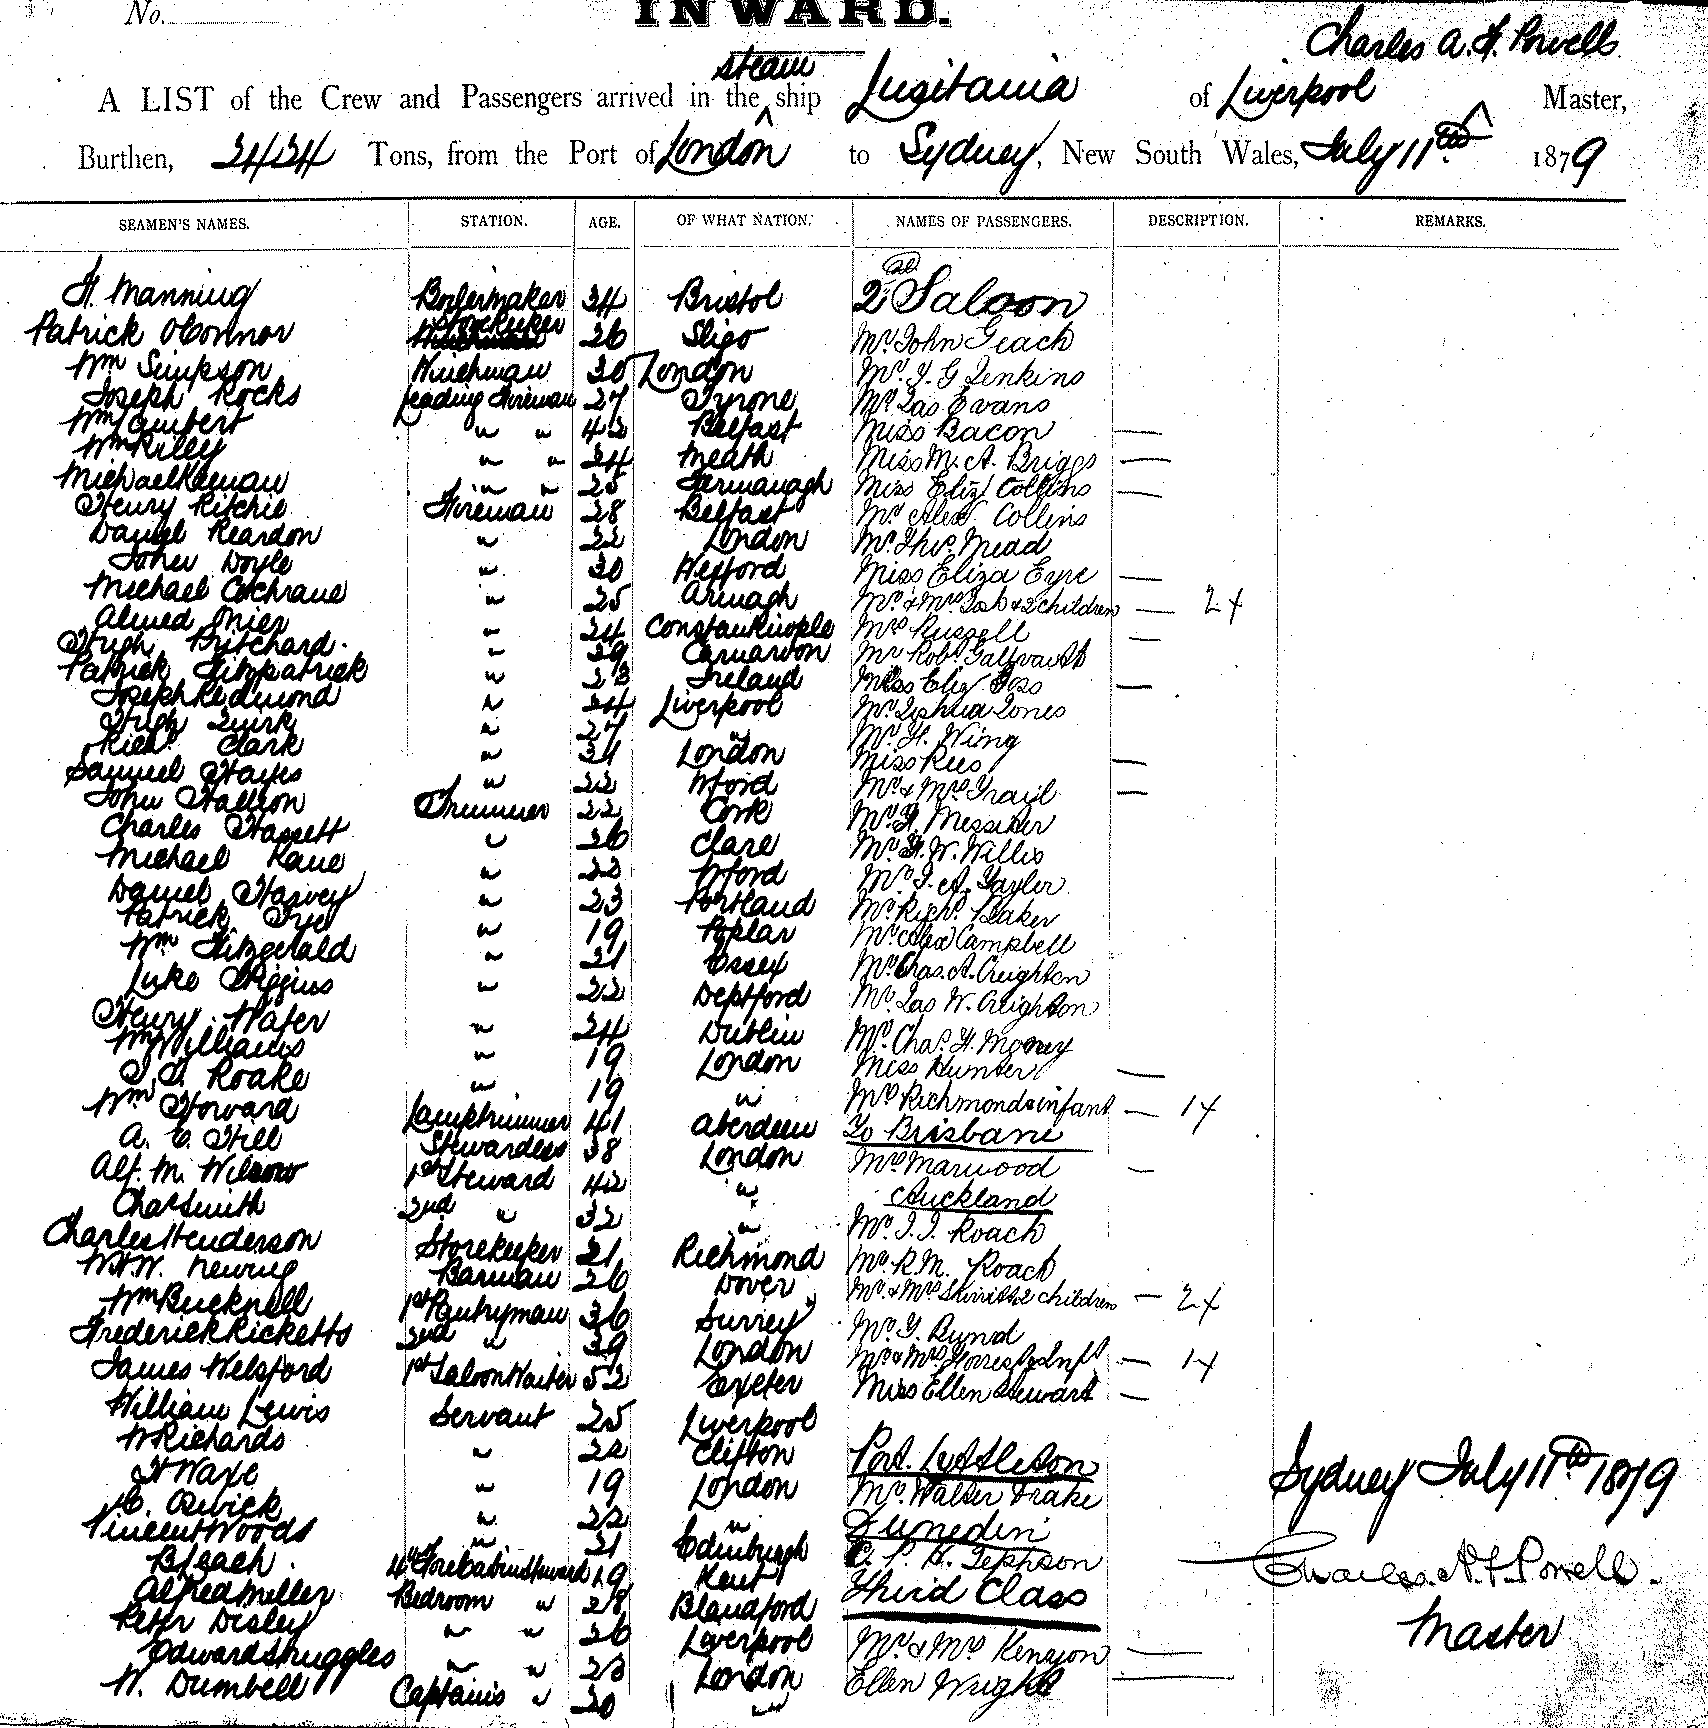 No.
INWARD.
Charles A. F. Powells
steam
A LIST of the Crew and Passengers arrived in the ship Lusitania of Liverpool Master,
Burthen, 2424 Tons, from the Port of London to Sydney, New South Wales, July 11th 1879
SEAMEN'S NAMES. STATION. AGE. OF WHAT NATION. NAMES OF PASSENGERS. DESCRIPTION. REMARKS.
H. Manning Boilermaker 34 Bristol 2nd Saloon
Patrick O'Connor Storekeeper 26 Sligo Mr. John Geach
Wm Simpson Winchman 30 London Mr. J. G Jenkins
Joseph Rocks Leading Fireman 27 Tyrone Mr Jas Evans
Wm Lambert " " 42 Belfast Miss Bacon —
Wm Riley " " 24 Meath Miss M. A. Briggs —
Michael Keenan " " 25 Farmanagh Miss Eliz Collins —
Henry Ritchie Fireman 28 Belfast Mr. Alexr Collins
Daniel Reardon " 22 London Mr. Thos. Mead
John Doyle " 30 Wexford Miss Eliza Eyre —
Michael Cochrane " 25 Armagh Mr. & Mrs Tosh & 2 children — 2+
Ahmed Mier " 24 Constantinople Mrs Russell —
Hugh Pritchard. " 29 Carnarvon Mr Robt. Galbraith
Patrick Fitzpatrick " 23 Ireland Miss Eliz Goss —
Joseph Redmond " 24 Liverpool Mr. Joshua Jones
Hugh Quirk " 27 " Mr. H. Wing
Richd. Clark " 31 London Miss Rees —
Samuel Hayes " 22 Wford Mr. & Mrs Trail —
John Hallion Trimmer 22 Cork Mr. H. Messiter
Charles Hassett " 26 Clare Mr. H. W. Willis
Michael Kane " 22 Wford Mr. J. A. Taylor
Daniel Harvey " 23 Portland Mr. Richd. Baker
Patrick Frye " 19 Poplar Mr. Alex Campbell
Wm Fitzgerald " 21 Essex Mr. Chas. A. Creighton
Luke Higgins " 22 Deptford Mr. Jas W. Creighton
Henry Wafer " 24 Dublin Mr. Chas. H. Mooney
Wm Williams " 19 London Miss Hunter —
J. J. Roake " 19 " Mrs Richmond & infant — 1+
Wm Howard Lamptrimmer 41 Aberdeen To Brisbane
A. E. Hill Stewardess 38 London Mrs Marwood —
Alf. M. Wilson 1st Steward 42 " Auckland
Chas Smith 2nd " 32 " Mr. J. J. Roach
Charles Henderson Storekeeper 21 Richmond Mr. R. M. Roach
W. H. W. Newing Barman 26 Dover Mr. & Mrs Skirritt & 2 children — 2+
Wm Bucknell 1st Pantryman 36 Surrey Mr. G. Bund
Frederick Ricketts 2nd " 39 London Mr & Mrs Forrest & Inft — 1+
James Welsford 1st Saloon Waiter 52 Exeter Miss Ellen Stewart —
William Lewis Servant 25 Liverpool
W Richards " 22 Clifton Port Lyttleton
H Waxe " 19 London Mr. Walter Drake
C. Orwick " 22 " Dunedin
Vincent Woods " 21 Edinburgh C. P. H. Jephson
B Leach. 4th Forecabin Steward 19 Kent Third Class
Alfred Miller Bedroom " 28 Blandford
Peter Disley " " 26 Liverpool Mr. & Mrs Kenyon —
Edward Struggles " " 23 London Ellen Wright —
W. Dumbell Captains " 20 "
Sydney July 11th 1879
Charles A. F. Powell.
Master